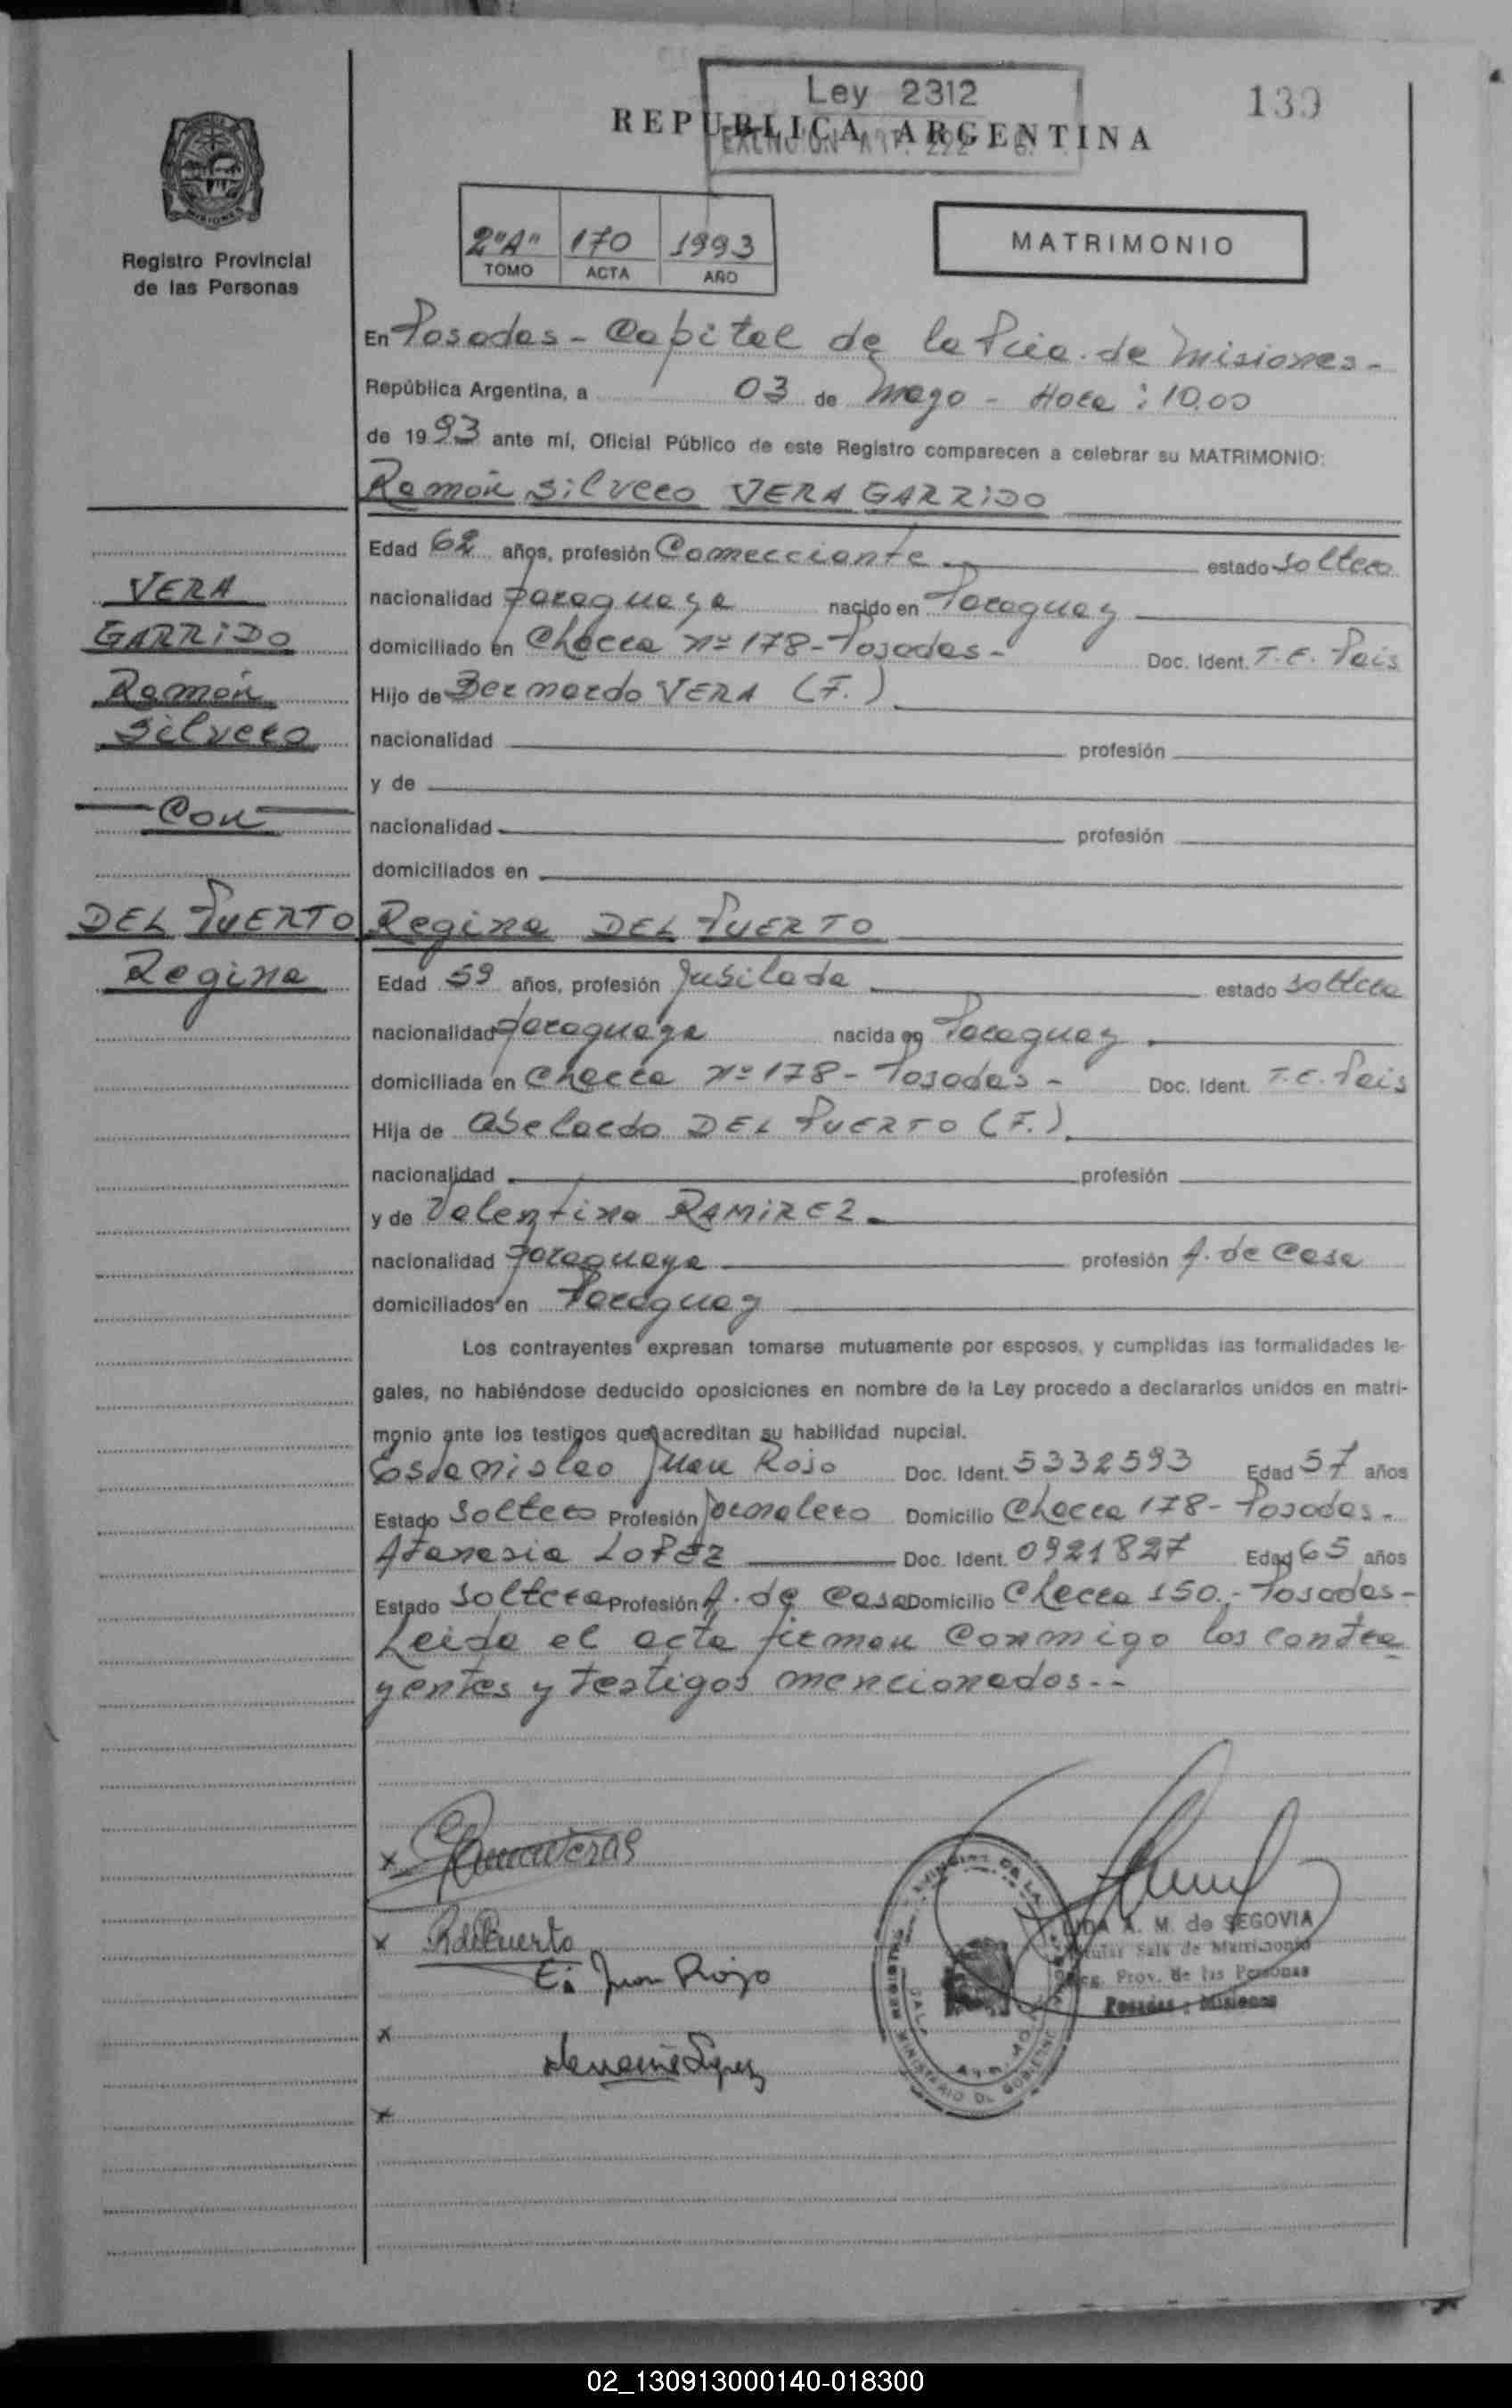 Ley 2312
139
REPUBLICA ARGENTINA
Registro Provincial
de las Personas
2"A" 170 1993
TOMO ACTA AÑO
MATRIMONIO
En Posadas - Capital de la Pcia. de Misiones-
República Argentina, a 03 de Mayo - Hora: 10,00
de 1993 ante mí, Oficial Público de este Registro comparecen a celebrar su MATRIMONIO:
Ramón Silvero VERA GARRIDO
VERA
GARRIDO
Ramón
Silvero
Con
DEL PUERTO
Regina
Edad 62 años, profesión Comerciante estado soltero
nacionalidad paraguaya nacido en Paraguay
domiciliado en Chacra Nº 178- Posadas- Doc. Ident. T.E. Pais
Hijo de Bernardo VERA (F.)
nacionalidad profesión
y de
nacionalidad profesión
domiciliados en
Regina DEL PUERTO
Edad 59 años, profesión Jubilada estado soltera
nacionalidad paraguaya nacida en Paraguay
domiciliada en Chacra Nº 178- Posadas- Doc. Ident. T.E. Pais
Hija de Abelardo DEL PUERTO (F.)
nacionalidad profesión
y de Valentina RAMIREZ
nacionalidad paraguaya profesión A. de Casa
domiciliados en Paraguay
Los contrayentes expresan tomarse mutuamente por esposos, y cumplidas las formalidades le-
gales, no habiéndose deducido oposiciones en nombre de la Ley procedo a declararlos unidos en matri-
monio ante los testigos que acreditan su habilidad nupcial.
Estanislao Juan Rojo Doc. Ident. 5332593 Edad 57 años
Estado Soltero Profesión Jornalero Domicilio Chacra 178- Posadas-
Atanasia LOPEZ Doc. Ident. 0921827 Edad 65 años
Estado Soltera Profesión A. de Casa Domicilio Chacra 150.- Posadas-
Leida el acta firman conmigo los contra
yentes y testigos mencionados.-
x
x RdelPuerto
E. Juan Rojo
x
x
A. M. de SEGOVIA
Titular Sala de Matrimonio
Reg. Prov. de las Personas
Posadas : Misiones
MINISTERIO DE GOBIERNO
02_130913000140-018300